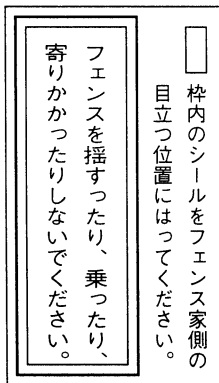 枠内のシールをフェンス家側の
目立つ位置にはってください。
フェンスを揺すったり、乗ったり、
寄りかかったりしないでください。